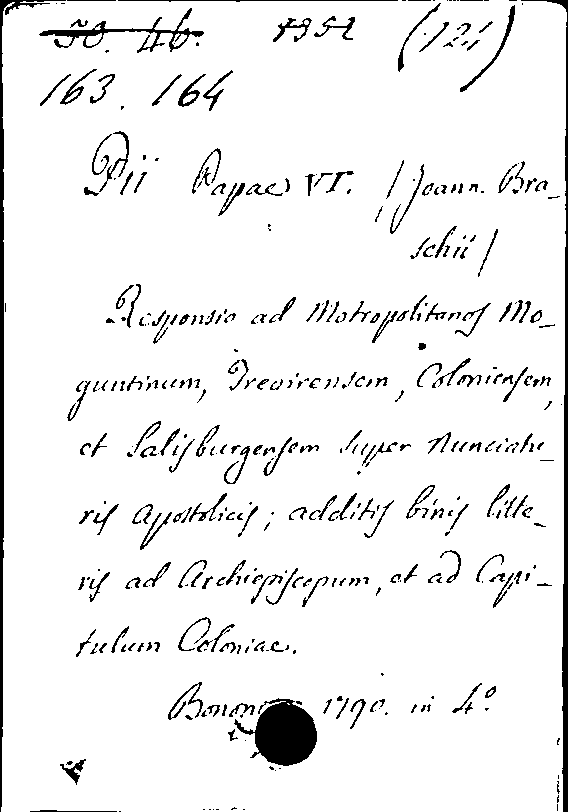 50. 46. 1352 (124)
163. 164
Pii Papae VI. /Joann. Bra-
schii/
Responsio ad Metropolitanos Mo-
guntinum, Trevirensem, Coloniensem,
et Salisburgensem super Nunciatu-
ris Apostolicis; additis binis litte-
ris ad Archiepiscopum, et ad Capi-
tulum Coloniae.
1790. in 4º